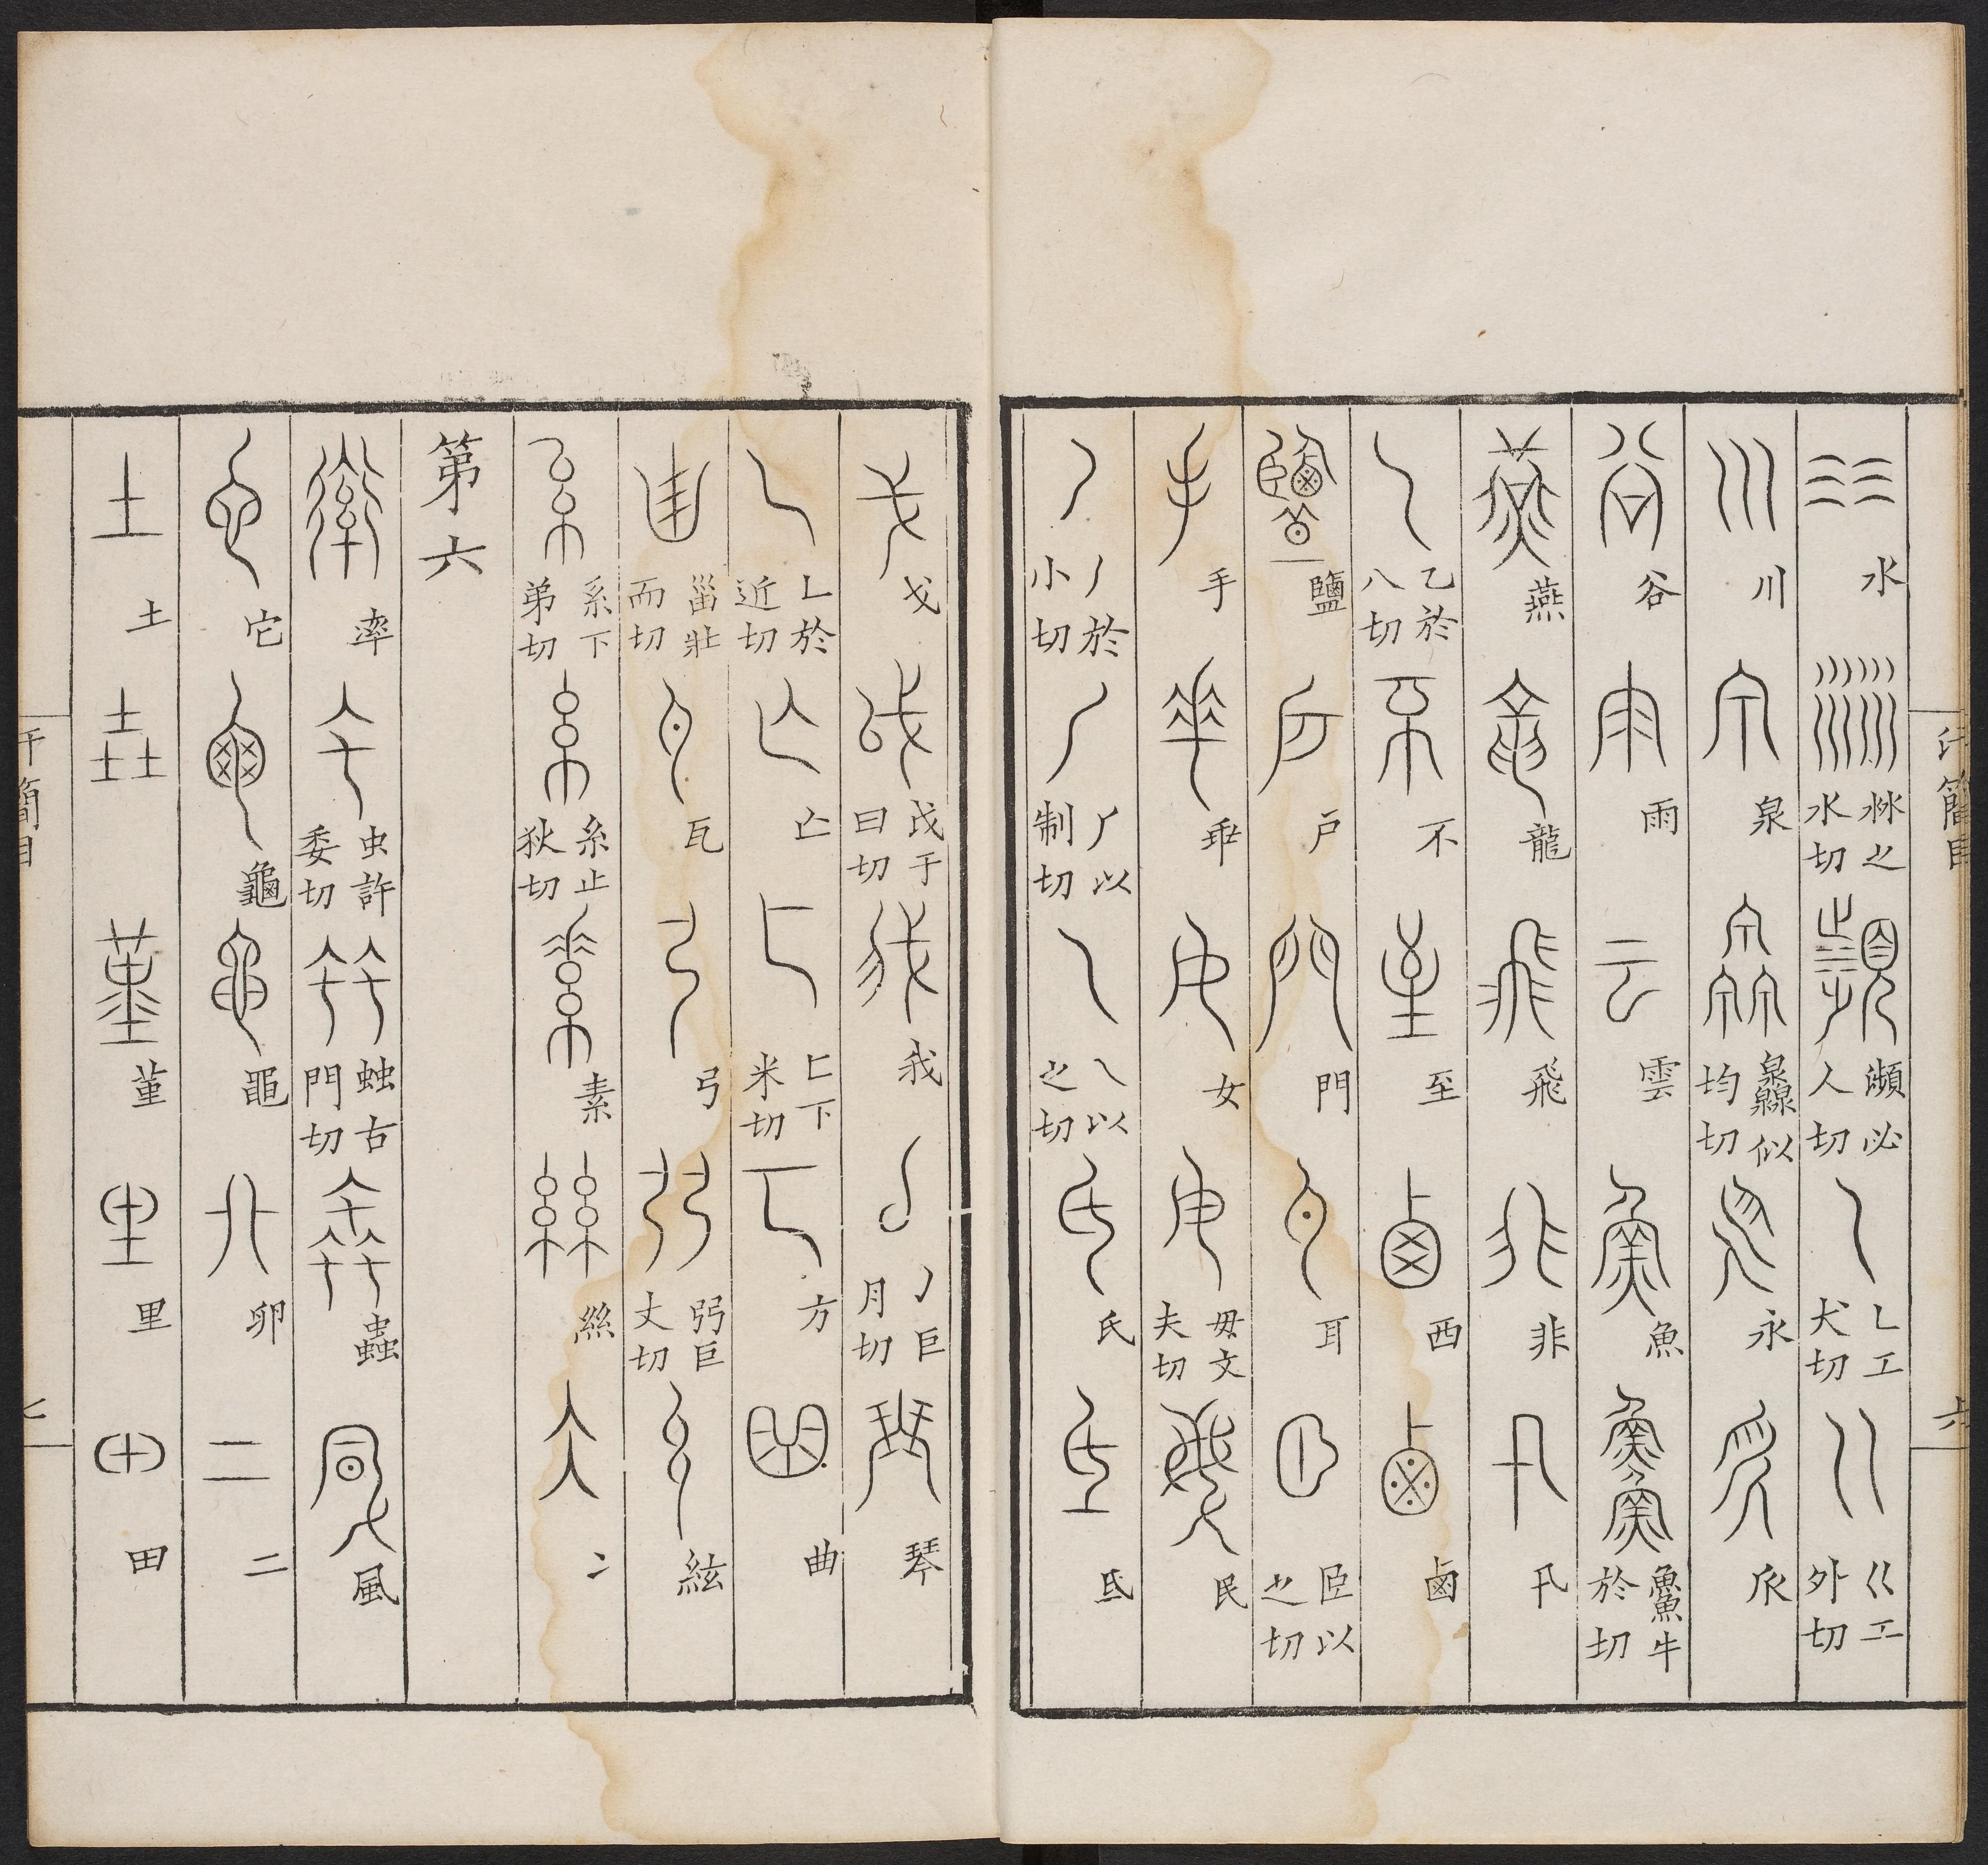 汗簡目 六
水 沝之水切 瀕必人切 乚工犬切 巜工外切
川 泉 灥似均切 永 𠂢
谷 雨 雲 魚 䲆牛於切
燕 龍 飛 非 卂
乙於八切 不 至 西 鹵
鹽 戶 門 耳 𦣞以之切
手 𠂹 女 毋文夫切 民
丿於小切 𠂆以制切 乁以之切 氏 氐
戈 戉于曰切 我 亅巨月切 琴
乚於近切 亾 匸下米切 方 曲
甾壯而切 瓦 弓 弜巨丈切 絃
系下弟切 糸止狄切 素 絲 冫
第六
率 虫許委切 䖵古門切 蟲 風
它 龜 黽 卵 二
土 垚 堇 里 田
汗簡目 七